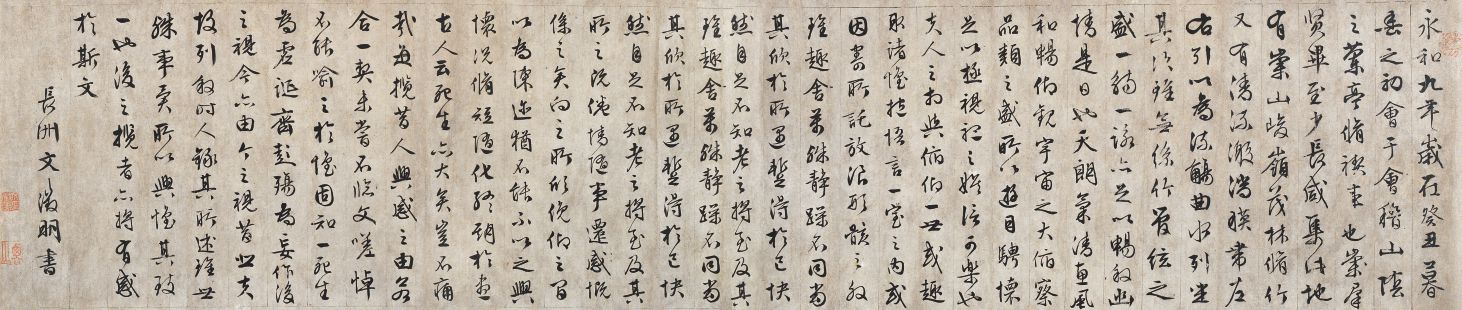 永和九年歲在癸丑暮
春之初會于會稽山陰
之蘭亭脩禊事也羣
賢畢至少長咸集此地
有崇山峻嶺茂林脩竹
又有清流激湍暎帶左
右引以為流觴曲水列坐
其次雖無絲竹管絃之
盛一觴一詠亦足以暢敘幽
情是日也天朗氣清惠風
和暢仰觀宇宙之大俯察
品類之盛所以遊目騁懷
足以極視聽之娛信可樂也
夫人之相與俯仰一世或趣
取諸懷抱悟言一室之內或
因寄所託放浪形骸之外
雖趣舍萬殊靜躁不同當
其欣於所遇蹔得於己快
然自足不知老之將至及其
雖趣舍萬殊靜躁不同當
其欣於所遇蹔得於己快
然自足不知老之將至及其
所之既倦情隨事遷感慨
係之矣向之所欣俛仰之間
以為陳迹猶不能不以之興
懷況脩短隨化終期於盡
古人云死生亦大矣豈不痛
哉每攬昔人興感之由若
合一契未嘗不臨文嗟悼
不能喻之於懷固知一死生
為虛誕齊彭殤為妄作後
之視今亦由今之視昔悲夫
故列敘時人錄其所述雖世
殊事異所以興懷其致
一也後之攬者亦將有感
於斯文
長洲文徵明書